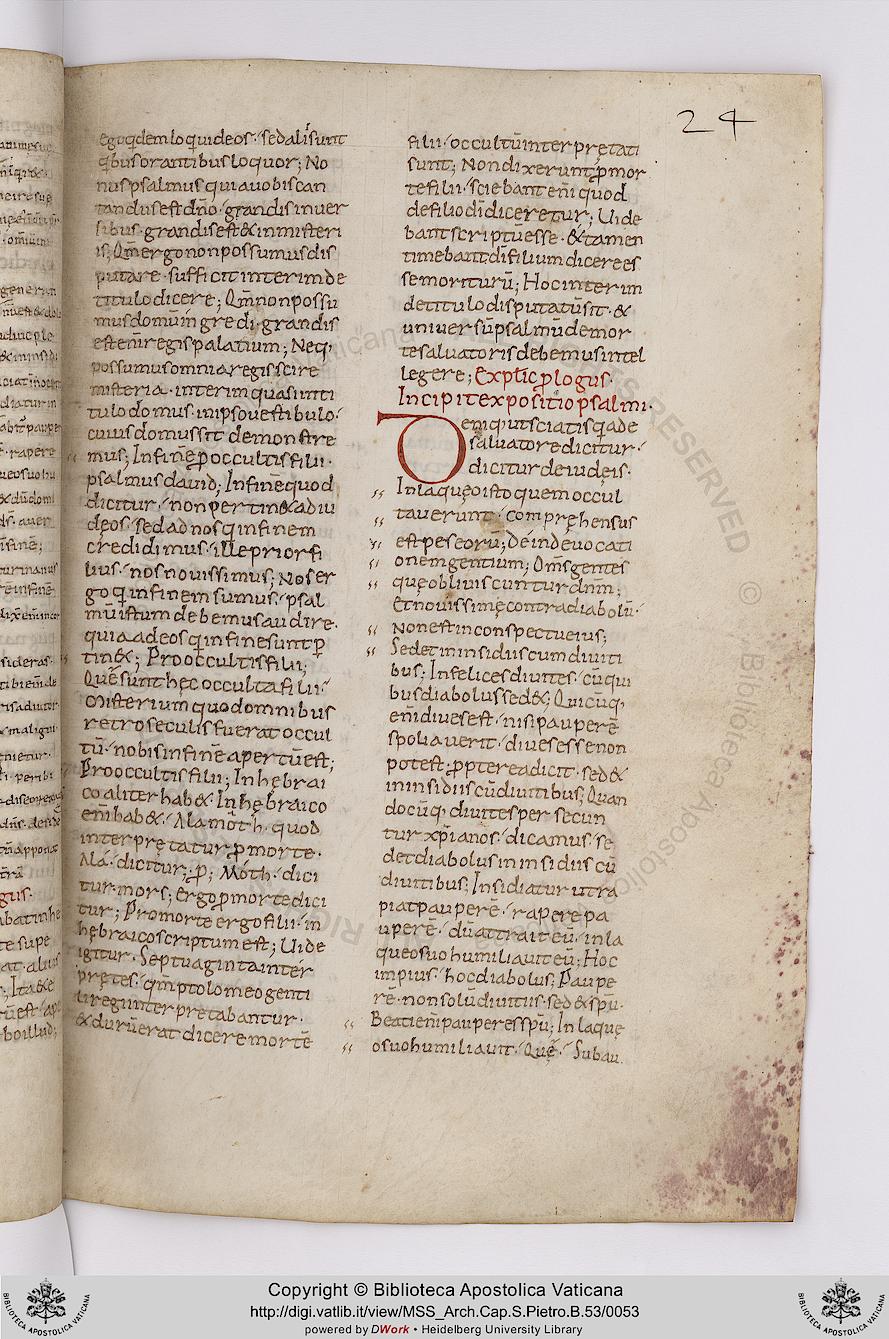 24
ego q̇dem loq̇ui deos · sed alii sunt
q̇bus orantibus loquor; No
nus psalmus qui a uobis can
tandus est dn̄o · grandis in uer
sibus · grandis est & in misteri
is; Qm̄ ergo non possumus dis
putare · sufficit interim de
titulo dicere; Qm̄ non possu
mus domū ingredi · grandis
est enī regis palatium; Neq,
possumus omnia regis scire
misteria · interim quasi in ti
tulo domus · in ipso uestibulo ·
cuius domus sit demonstre
mus; In finē ꝓ occultis filii ·
psalmus dauid; In finē quod
dicitur · non pertin& ad iu
deos · sed ad nos q̇ in finem
credidimus · ille prior fi
lius · nos nouissimus; Nos er
go q̇ in finem sumus · psal
mū istum debemus audire ·
quia ad eos q̇ in fine sunt p̱
tin&; Pro occultis filii;
Quę sunt hęc occulta filii ·
Misterium quod omnibus
retro seculis fuerat occul
tū · nobis in finē apertū est;
Pro occultis filii; In hębrai
co aliter hab& · In hębraico
enī hab& · Alamōth · quod
interprętatur ꝓ morte ·
Ala · dicitur · ꝓ; Mōth · dici
tur mors; Ergo ꝓ morte dici
tur; Pro morte ergo filii · in
hębraico scriptum est; Uide
igitur · Septuaginta inter
prętes · qm̄ ptolomeo genti
li regi interprętabantur ·
& durū erat dicere mortē
filii · occultū interprętati
sunt; Non dixerunt ꝓ mor
te filii · sciebant enī quod
de filio dī diceretur; Uide
bant scriptū esse · & tamen
timebant dī filium dicere es
se moriturū; Hoc interim
de titulo disputatū sit · &
uniuersū psalmū de mor
te saluatoris debemus intel
legere; Explīc ꝓlogus ·
Incipit expositio psalmi ·
Deniq, ut sciatis q̇a de
saluatore dicitur ·
dicitur de iudęis ·
In laquęo isto quem occul
tauerunt · comprehensus
est pes eorū; Deinde uocati
onem gentium; Om̄s gentes
quę obliuiscuntur dn̄m;
Et nouissimę contra diabolū ·
Non est in conspectu eius;
Sedet in insidiis cum diuiti
bus; Infelices diuites · cū qui
bus diabolus sed&; Quicūq,
enī diues est · nisi pauperē
spoliauerit · diues esse non
potest · ꝓpterea dicit · sed&
in insidiis cū diuitibus; Quan
docūq, diuites persecun
tur xp̄ianos · dicamus · se
det diabolus in insidiis cū
diuitibus; Insidiatur ut ra
piat pauperē · rapere pa
uperē · dū attrait eū · in la
queo suo humiliauit eū; Hoc
impius · hoc diabolus; Paupe
rē · non solū diuitiis · sed & sp̄u ·
Beati enī pauperes sp̄u; In laquę
o suo humiliauit · Quę · Subau
Copyright © Biblioteca Apostolica Vaticana
http://digi.vatlib.it/view/MSS_Arch.Cap.S.Pietro.B.53/0053
powered by DWork • Heidelberg University Library